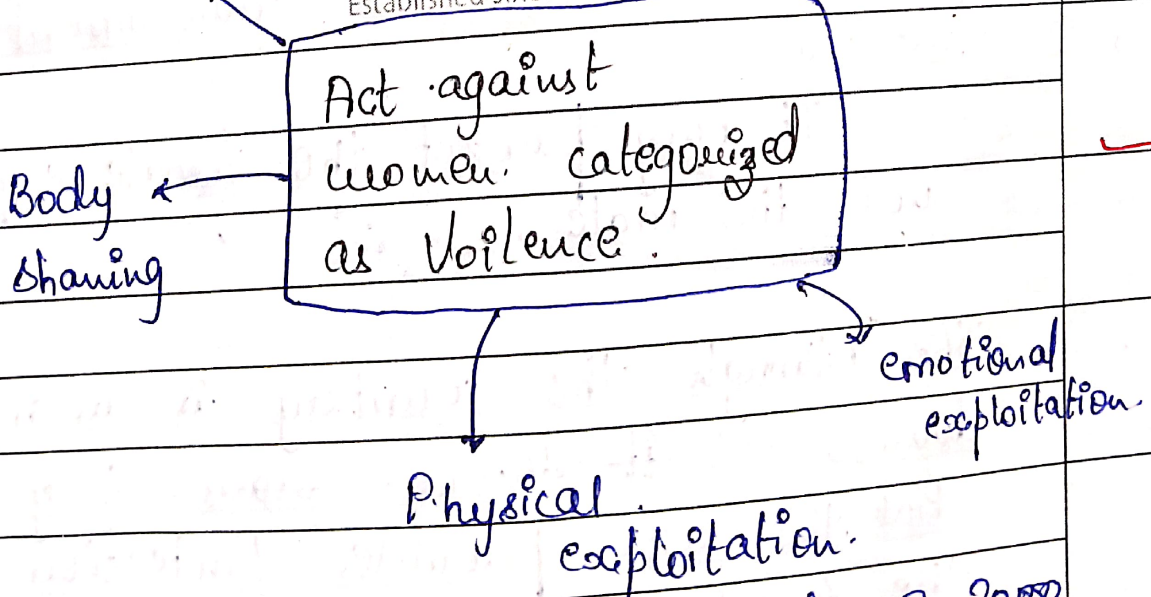 Act against
women. categorized
as Voilence.
Body
shaming
emotional
exploitation.
Physical
exploitation.